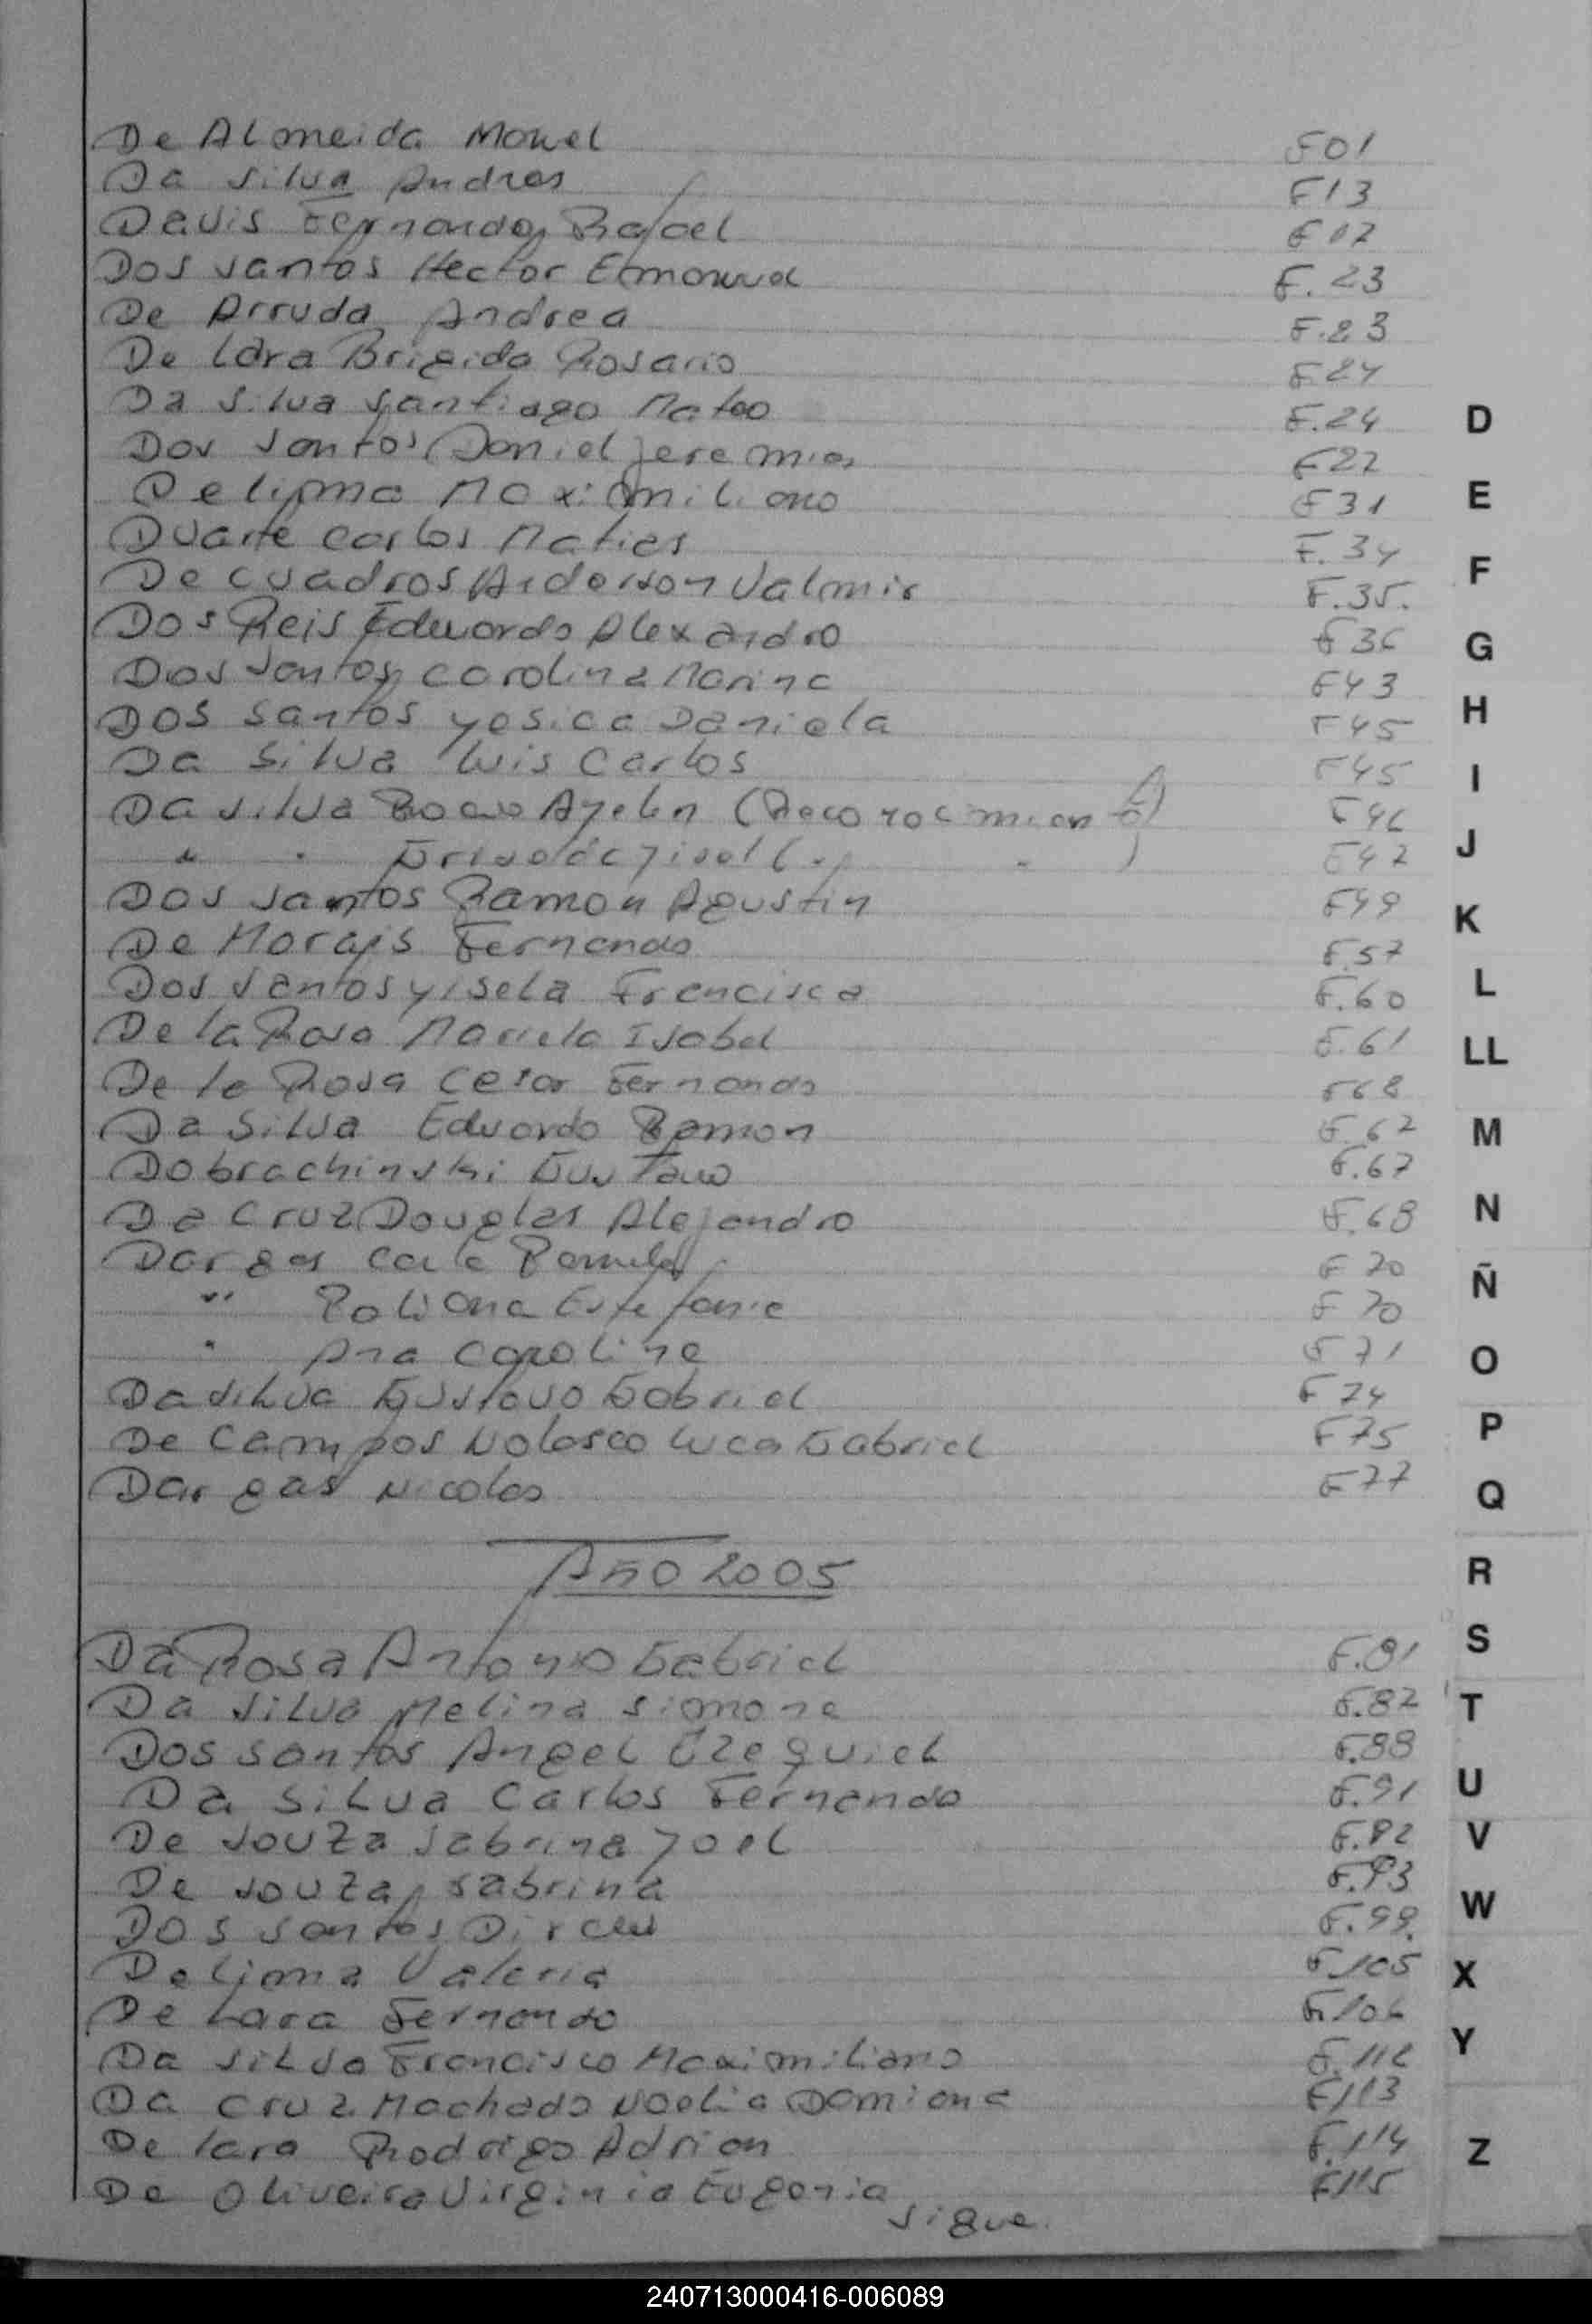 De Almeida Manuel F01
Da Silva Andres F13
Davis Fernando Rafael F17
Dos Santos Hector Emanuel F.23
De Arruda Andrea F.23
De Lara Brigida Rosario F24
Da Silva Santiago Mateo F.24
Dos Santos Daniel Jeremias F27
De Lima Maximiliano F31
Duarte Carlos Matias F.34
De Cuadros Anderson Valmir F.35.
Dos Reis Eduardo Alexandro F36
Dos Santos Carolina Marina F43
Dos Santos Yesica Daniela F45
Da Silva Luis Carlos F45
Da Silva Rocio Ayelen (Reconocimiento) F46
" " Griselda Gisell ( " " ) F47
Dos Santos Ramon Agustin F49
De Morais Fernando F.57
Dos Santos Yisela Francisca F.60
De la Rosa Mariela Isabel F.61
De la Rosa Cesar Fernando F68
Da Silva Eduardo Ramon F.67
Dobrachinski Gustavo F.67
Da Cruz Douglas Alejandro F.68
Dargas Carla Pamela F70
" Poliana Estefanie F70
" Ana Caroline F71
Da Silva Gustavo Gabriel F74
De Campos Nolasco Luca Gabriel F75
Dargas Nicolas F77
Año 2005
Da Rosa Antonio Gabriel F.81
Da Silva Melina Simone F.82
Dos Santos Angel Ezequiel F.88
Da Silva Carlos Fernando F.91
De Souza Sabrina Joel F.92
De Souza, Sabrina F.93
Dos Santos Dirceu F.99.
De Lima Valeria F.105
De Lara Fernando F.106
Da Silva Francisco Maximiliano F.112
Da Cruz Machado Noelia Damiana F113
De Lara Rodrigo Adrian F.114
De Oliveira Virginia Eugenia F115
Sigue.
D
E
F
G
H
I
J
K
L
LL
M
N
Ñ
O
P
Q
R
S
T
U
V
W
X
Y
Z
240713000416-006089